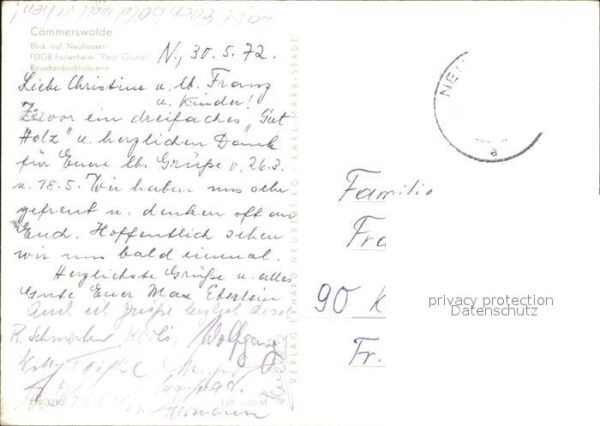 laßt Euch bald mal sehen!
Cämmerswalde
Blick auf Neuhausen
FDGB-Ferienheim "Paul Gruner"
Rauschenbachtalsperre
N., 30.5.72.
Liebe Christine u. lb. Franz
u. Kinder!
Zuvor ein dreifaches "Gut
Holz" u. herzlichen Dank
für Eure lb. Grüße v. 26.3.
u. 18.5. Wir haben uns sehr
gefreut u. denken oft an
Euch. Hoffentlich sehen
wir uns bald einmal.
Herzlichste Grüße u. alles
Gute Euer Max Eberlein
Auch ich grüße
R. Wolfgang
Hermann
EVP
VERLAG ERHARD NEUBERT KG KARL-MARX-STADT
NE
a
Familie
Fra
90 K
Fr.
privacy protection
Datenschutz